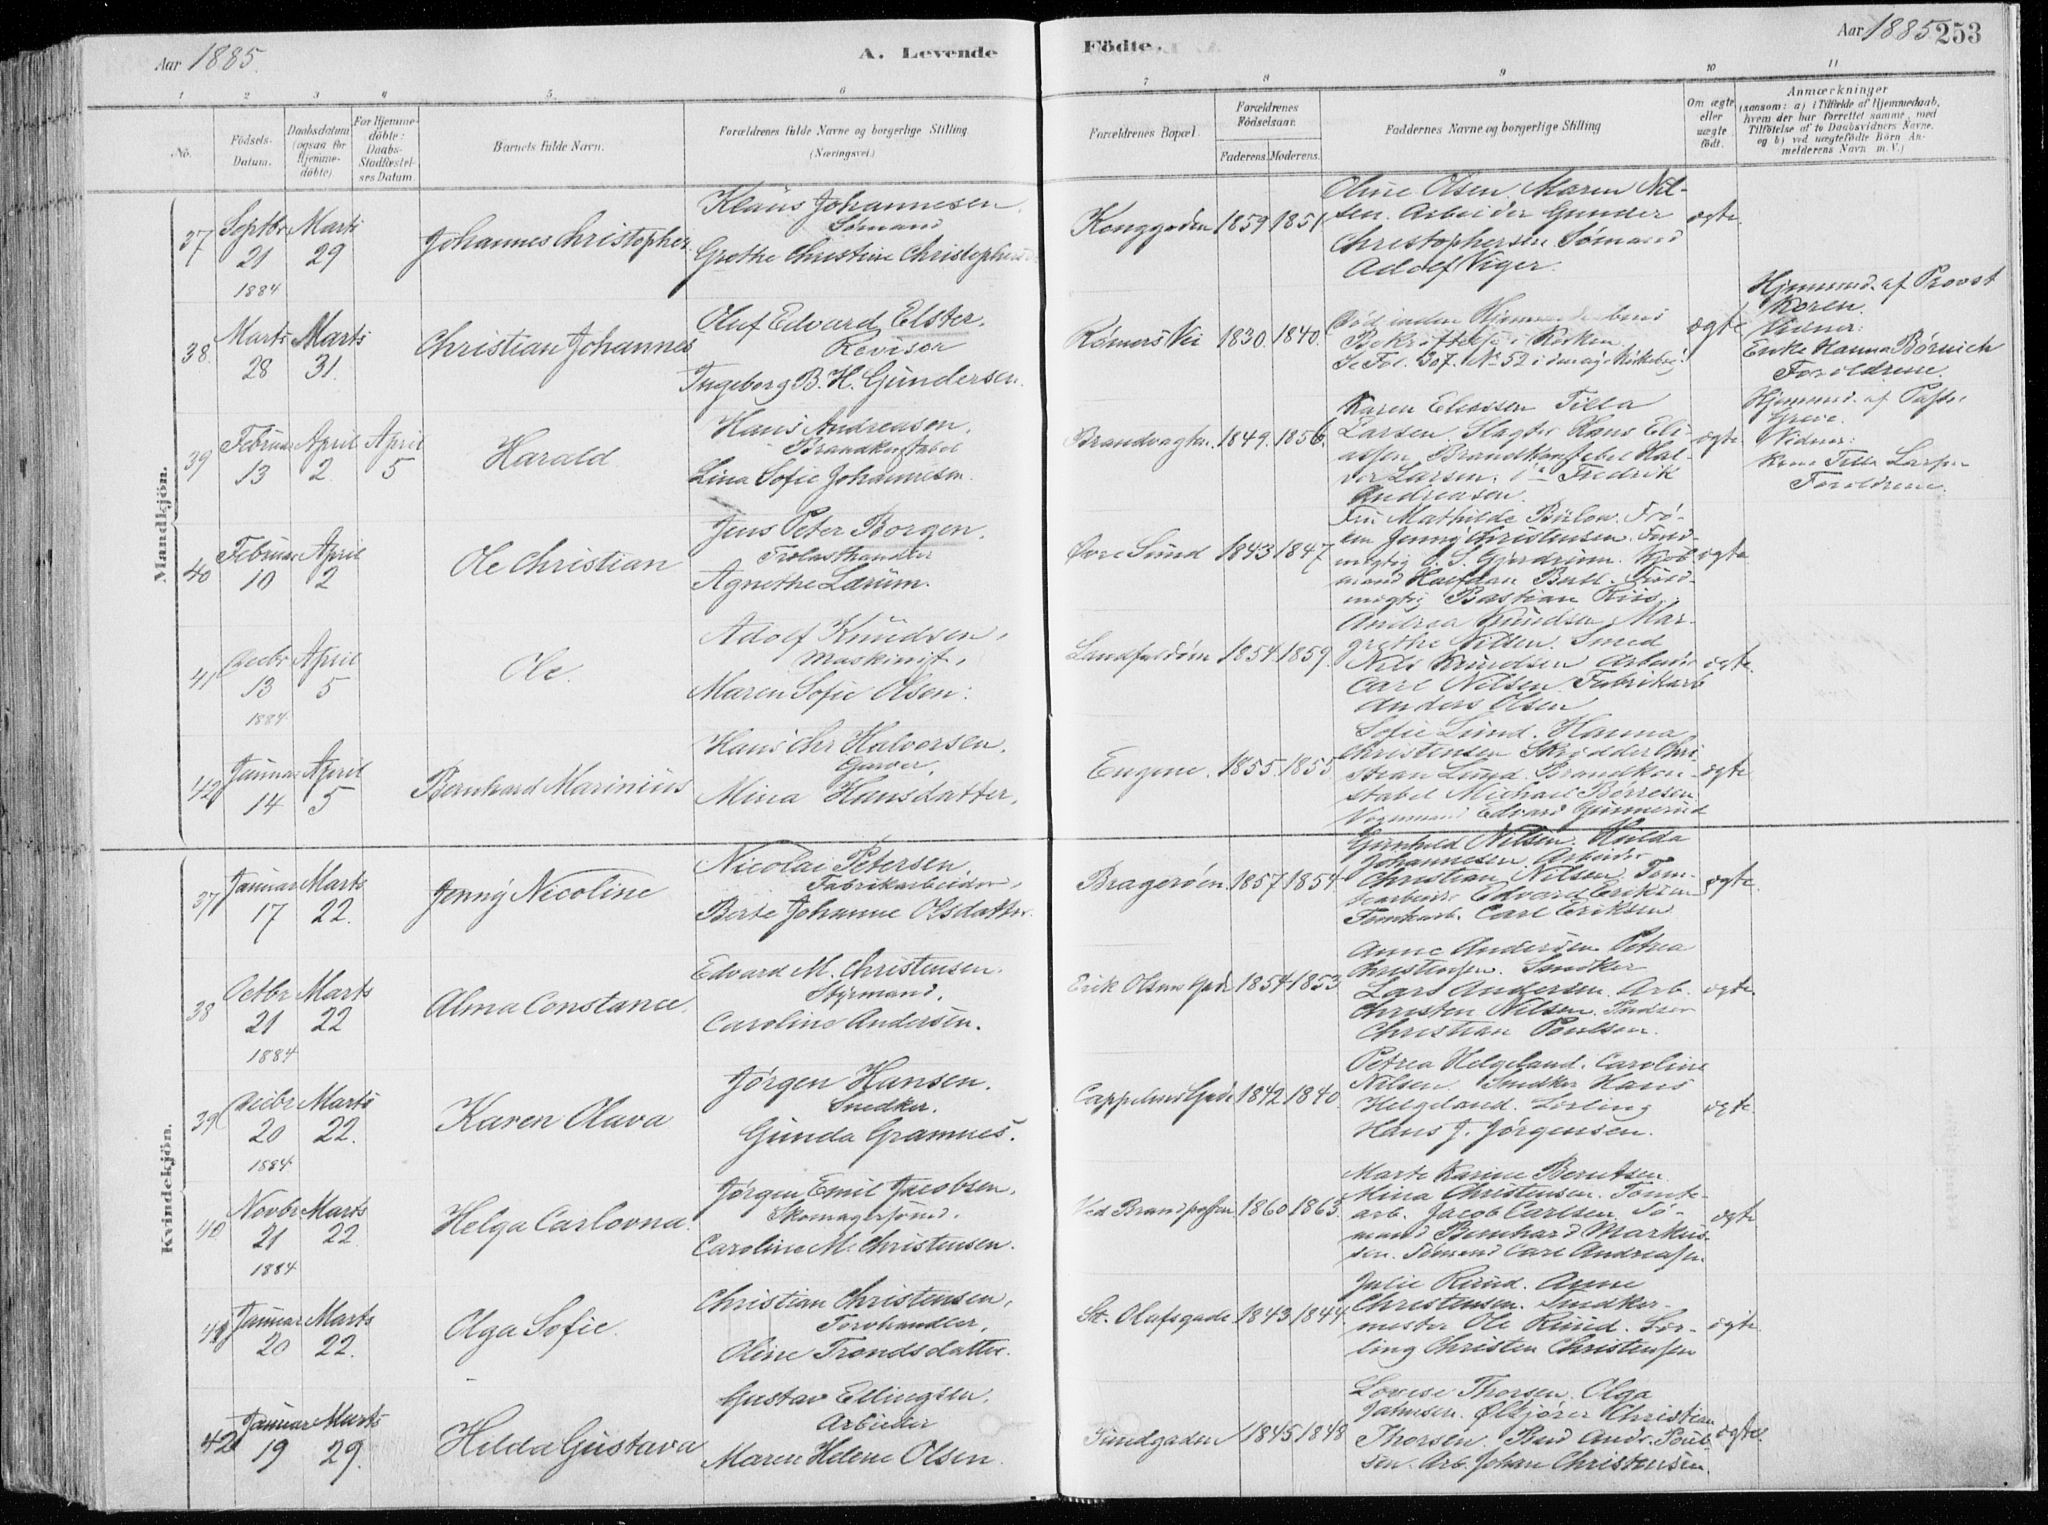 Aar 1885.
A. Levende
Födte.
Aar 1885
253
1 2 3 4 5 6 7 8 9 10 11
No.
Födsels-Datum.
Daabsdatum (ogsaa for Hjemmedöbte).
For Hjemmedöbte: Daabs-Stadfæstelses Datum.
Barnets fulde Navn.
Forældrenes fulde Navne og borgerlige Stilling
(Næringsvei.)
Forældrenes Bopæl.
Forældrenes Födselsaar.
Faderens. Moderens.
Faddernes Navne og borgerlige Stilling
Om ægte eller uægte födt.
Anmærkninger
(saasom: a) i Tilfælde af Hjemmedaab, hvem der har forrettet samme, med Tilföielse af to Daabsvidners Navne, og b) ved uægtefödte Börn Anmelderens Navn m. V.)
Mandkjön.
37 Septbr 21 1884 Marts 29
Johannes Christopher
Klaus Johannesen.
Sømand
Grethe Christine Christophersd
Konggaden 1859 1851
Oline Olsen. Maren Nil-
sen. Arbeider Gunder
Christophersen Sømand
Adolf Viger.
ægte.
38. Marts 28 Marts 31.
Christian Johannes
Oluf Edvard Elster.
Revisor
Ingeborg B. H. Gundersen.
Rømers Vei 1830. 1840.
Død inden Hjemmedaabens
Bekræftelse i Kirken.
ægte
Hjemmed. af Provst
Koren.
Vidner:
Enke Hanna Børnich
Forældrene.
39 Februar 13 April 2 April 5
Harald
Hans Andreasen.
Brandkonstabel
Lina Sofie Johannesen.
Brandvagten 1849. 1856.
Karen Eliassen Tilla
Larsen. Slagter Hans Eli-
assen. Brandkonstabel Hal-
vor Larsen. Fredrik
Andreasen.
ægte.
Hjemmed. af Pastor
Greve.
Vidner:
Kone Tilla Larsen
Forældrene.
40 Februar 10 April 2
Ole Christian
Jens Peter Borgen.
Trælasthandler
Agnethe Lærum.
Øvre Sund 1843 1847
Fru Mathilde Bülow. Frø-
ken Jenny Christensen. Fuld-
mægtig Gjerdrum. Kjøb-
mand Halfdan Bull. Fuld-
mægtig Bastian Riis.
ægte
41 Decbr 13 1884 April 5
Ole.
Adolf Knudsen,
Maskinist,
Maren Sofie Olsen:
Landfaldøen 1854. 1859.
Andrea Knudsen Mar-
grethe Nilsen. Smed
Nils Knudsen Arbeider
Carl Nilsen. Fabrikarb
Anders Olsen
ægte.
42 Januar 14 April 5
Bernhard Marinius
Hans Chr Halvorsen.
Garver.
Mina Hansdatter.
Eugene. 1855. 1855
Sofie Lund. Hanna
Christensen Skrædder Chri-
stian Lund. Brandkon-
stabel Michael Børresen
Vognmand Edvard Gunnerud
ægte
Kvindekjön.
37 Januar 17 Marts 22.
Jenny Nicoline
Nicolai Petersen.
Fabrikarbeider,
Berte Johanne Olsdatter.
Bragerøen 1857. 1854.
Gunhild Nilsen. Hulda
Johannesen. Arbeider
Christian Nilsen. Tom-
tearbeider Edvard Eriksen
Tomtearb. Carl Eriksen
ægte.
38 Octbr 21 1884 Marts 22
Alma Constance.
Edvard M. Christensen.
Styrmand.
Caroline Andersen.
Erik Olsens Gade 1854 1853.
Anne Andersen Petrea
Christensen. Snedker
Lars Andersen. Arb.
Christen Nilsen.
Christian Poulsen.
ægte.
39 Decbr 20 1884 Marts 22.
Karen Olava
Jørgen Hansen.
Snedker.
Gunda Gramnes.
Cappelens Gade 1842. 1840.
Petrea Helgeland. Caroline
Nilsen. Snedker Hans
Helgeland. Lærling
Hans J. Jørgensen.
ægte
40 Novbr 21 1884 Marts 22.
Helga Carlovna.
Jørgen Emil Jacobsen.
Skomagersvend.
Caroline M. Christensen.
Ved Brandposten 1860 1863.
Marte Karine Berntsen
Mina Christensen. Tomte-
arb. Jacob Carlsen. Sø-
mand Bernhard Markus-
sen. Sømand Carl Andreasen
ægte
41 Januar 20 Marts 22.
Olga Sofie.
Christian Christensen,
Torvhandler,
Oline Trondsdatter.
St. Olafsgade 1843. 1844.
Julie Ruud. Anne
Christensen. Snedker-
mester Ole Ruud. Lær-
ling Christen Christensen
ægte
42 Januar 19 Marts 29.
Hilda Gustava
Gustav Ellingsen.
Arbeider
Maren Helene Olsen.
Sundgaden 1845 1848
Lovise Thorsen. Olga
Jahnsen. Ølkjører Christian
Thorsen. Bud Andr. Poul-
sen. Arb. Johan Christensen.
ægte.